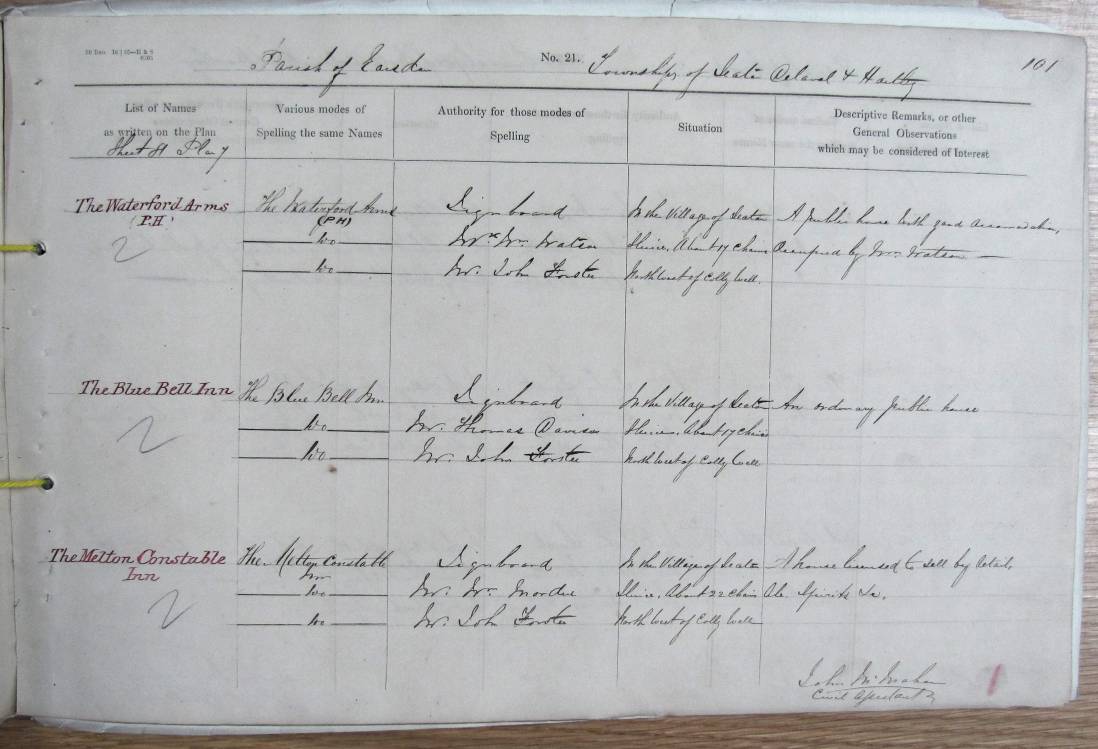 Parish of Earsdon No. 21. Townships of Seaton Delaval & Hartley 101
List of Names as written on the Plan
Sheet 81 Plan 7
Various modes of Spelling the same Names
Authority for those modes of Spelling
Situation
Descriptive Remarks, or other General Observations which may be considered of Interest
The Waterford Arms The Waterford Arms Signboard In the Village of Seaton A public house with good accomodation,
(P.H) (PH)
Do Mr Wm Watson Sluice, About 17 Chains Occupied by Wm Watson
2
Do Mr. John Forster North West of Colly Well.
The Blue Bell Inn The Blue Bell Inn Signboard In the Village of Seaton An ordinary public house
Do Mr. Thomas Davison Sluice, About 17 Chains
2
Do Mr. John Forster North West of Colly Well
The Melton Constable The Melton Constable Signboard In the Village of Seaton A house licensed to sell by retail,
Inn Inn
Do Mr. Wm. Sluice, About 22 Chains Ale Spirits &c.
2
Do Mr. John Forster North West of Colly Well
John McMahon
Civil Assistant